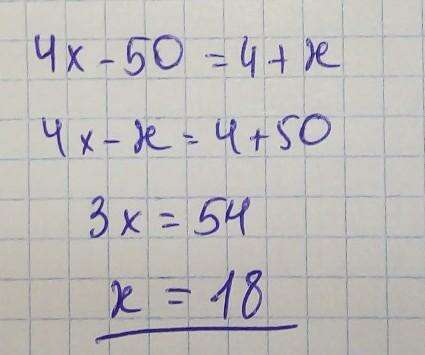 4x - 50 = 4 + x
4x - x = 4 + 50
3x = 54
x = 18